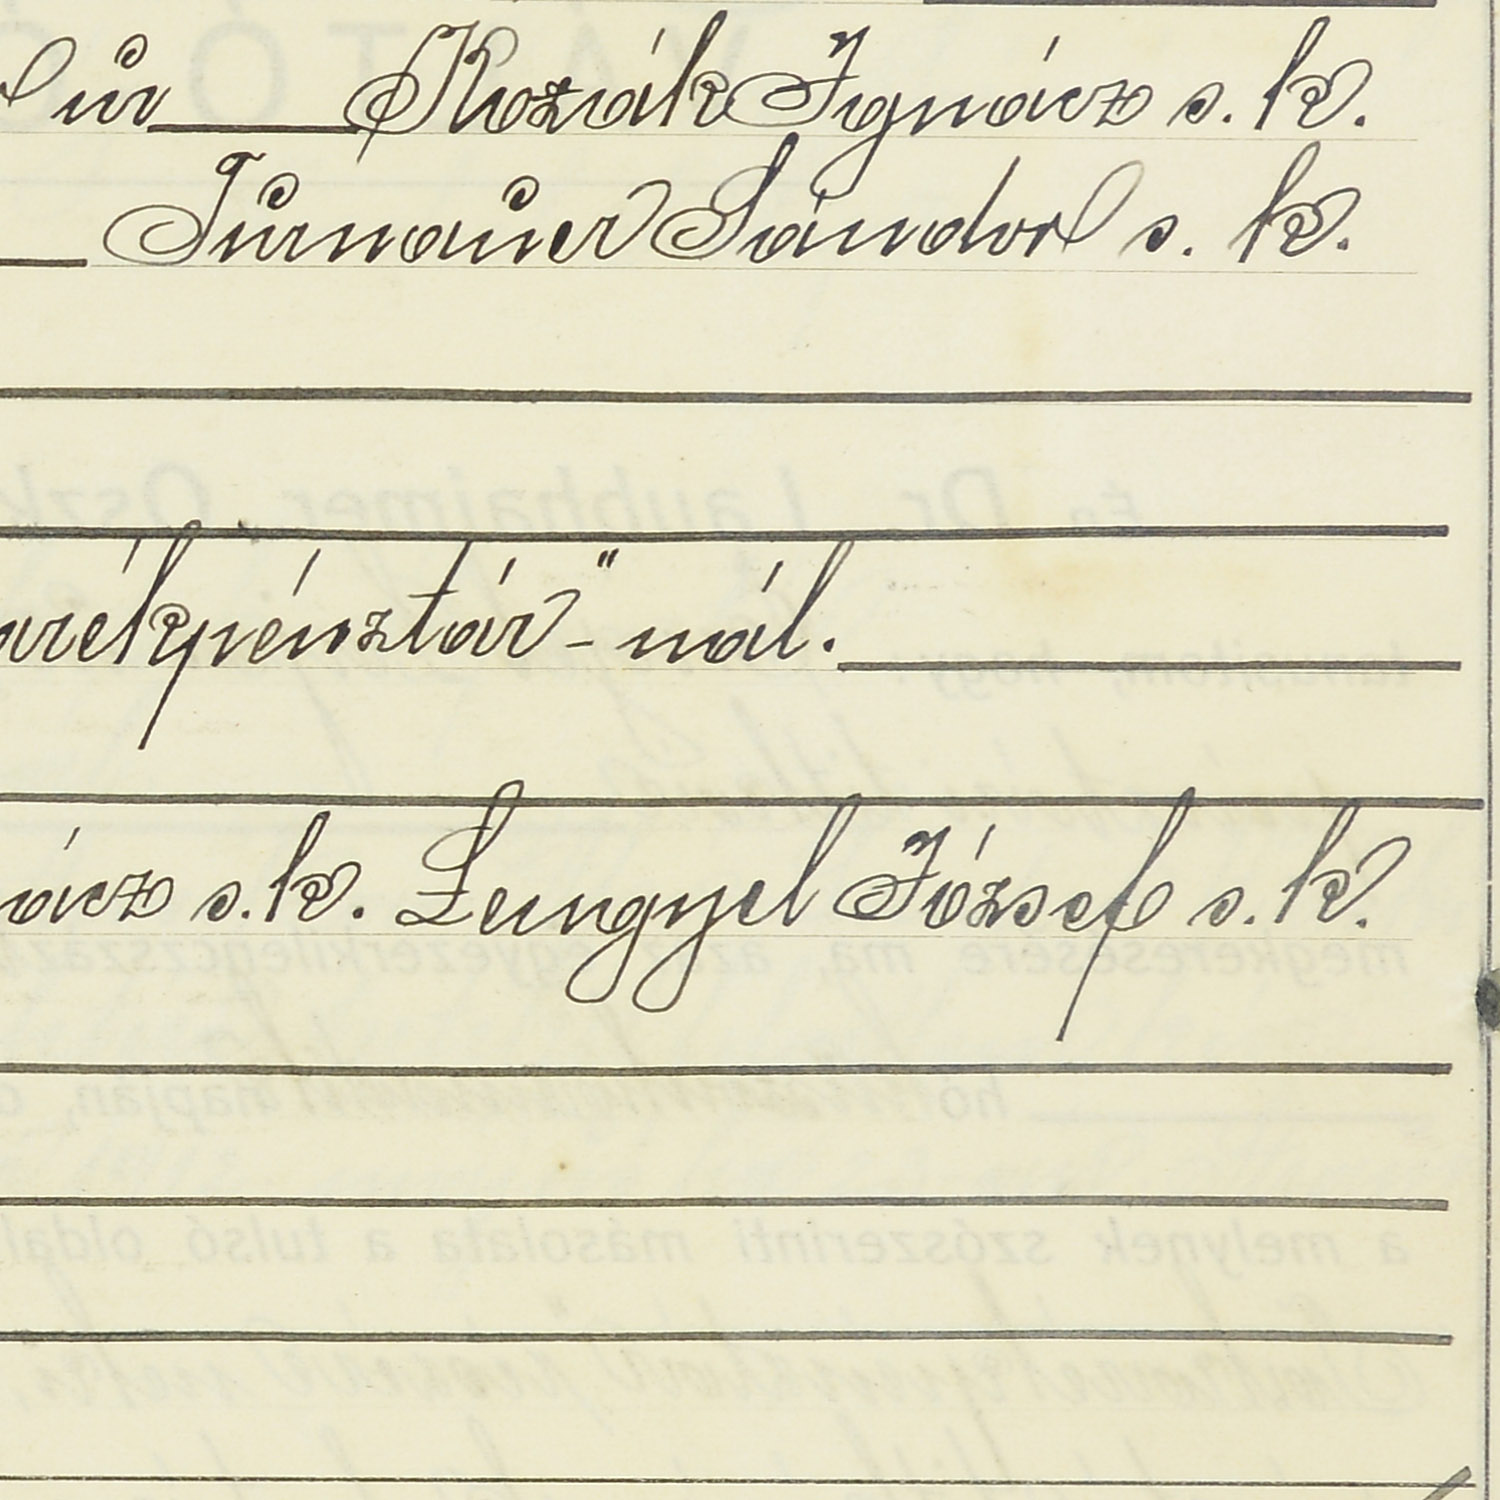 úr Kozák Ignácz s. k.
Turnauer Sándor s. k.
arékpénztár"- nál.
ácz s. k. Lengyel József s. k.